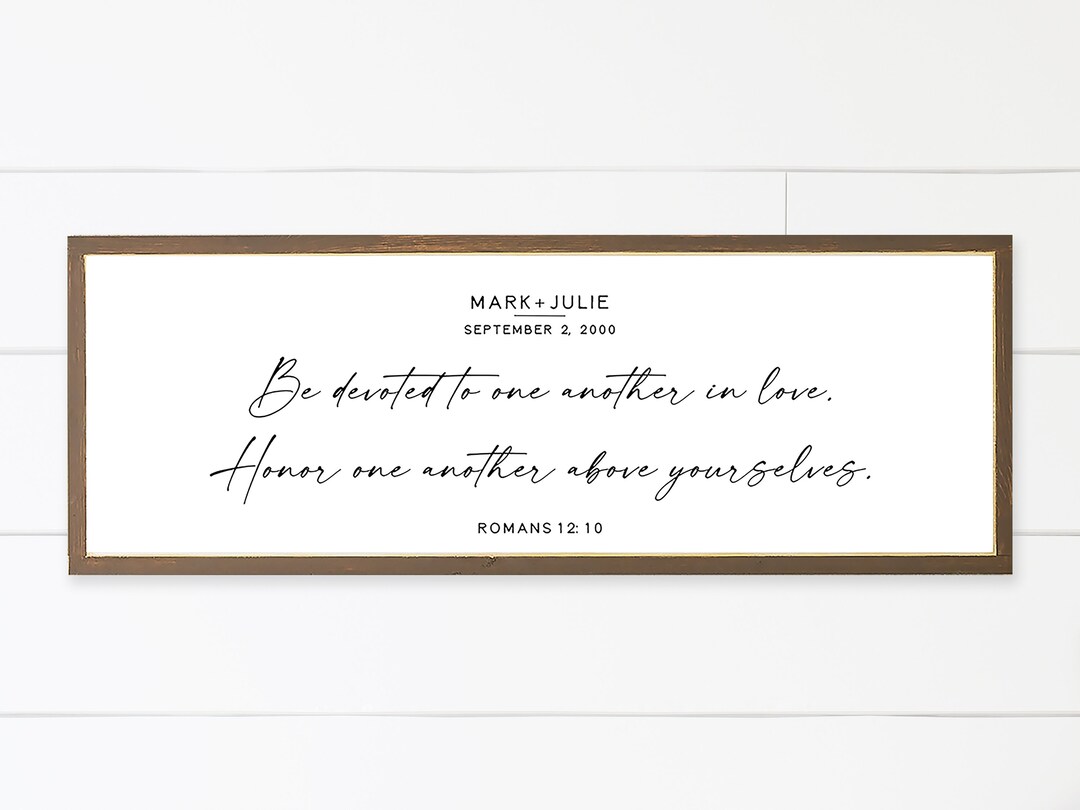 MARK + JULIE
SEPTEMBER 2, 2000
Be devoted to one another in love.
Honor one another above yourselves.
ROMANS 12:10